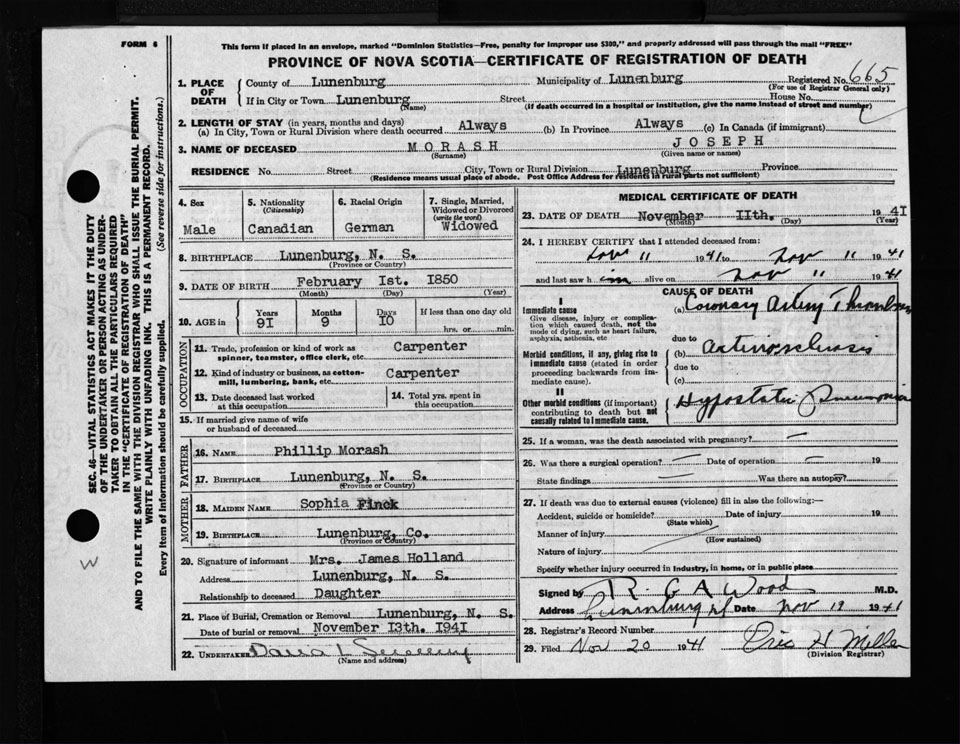 FORM 6
This form if placed in an envelope, marked "Dominion Statistics—Free, penalty for improper use $300," and properly addressed will pass through the mail "FREE"
PROVINCE OF NOVA SCOTIA—CERTIFICATE OF REGISTRATION OF DEATH
SEC. 46—VITAL STATISTICS ACT MAKES IT THE DUTY
OF THE UNDERTAKER OR PERSON ACTING AS UNDER-
TAKER TO OBTAIN ALL THE PARTICULARS REQUIRED
IN THE "CERTIFICATE OF REGISTRATION OF DEATH"
AND TO FILE THE SAME WITH THE DIVISION REGISTRAR WHO SHALL ISSUE THE BURIAL PERMIT.
WRITE PLAINLY WITH UNFADING INK. THIS IS A PERMANENT RECORD.
Every item of information should be carefully supplied. (See reverse side for instructions.)
W
1. PLACE OF DEATH County of Lunenburg Municipality of Lunenburg Registered No. 665
(For use of Registrar General only)
If in City or Town Lunenburg Street House No.
(Name) (If death occurred in a hospital or institution, give the name instead of street and number)
2. LENGTH OF STAY (in years, months and days)
(a) In City, Town or Rural Division where death occurred Always (b) In Province Always (c) In Canada (if immigrant)
3. NAME OF DECEASED MORASH JOSEPH
(Surname) (Given name or names)
RESIDENCE No. Street City, Town or Rural Division Lunenburg Province
(Residence means usual place of abode. Post Office Address for residents in rural parts not sufficient)
4. Sex Male
5. Nationality (Citizenship) Canadian
6. Racial Origin German
7. Single, Married, Widowed or Divorced (write the word) Widowed
8. BIRTHPLACE Lunenburg, N. S.
(Province or Country)
9. DATE OF BIRTH February Ist. I850
(Month) (Day) (Year)
10. AGE in Years 9I Months 9 Days I0 If less than one day old hrs. or min.
OCCUPATION
11. Trade, profession or kind of work as spinner, teamster, office clerk, etc. Carpenter
12. Kind of industry or business, as cotton-mill, lumbering, bank, etc. Carpenter
13. Date deceased last worked at this occupation
14. Total yrs. spent in this occupation
15. If married give name of wife or husband of deceased
FATHER
16. NAME Phillip Morash
17. BIRTHPLACE Lunenburg, N. S.
(Province or Country)
MOTHER
18. MAIDEN NAME Sophia Finck
19. BIRTHPLACE Lunenburg, Co.
(Province or Country)
20. Signature of informant Mrs. James Holland
Address Lunenburg, N. S.
Relationship to deceased Daughter
21. Place of Burial, Cremation or Removal Lunenburg, N. S.
Date of burial or removal November I3th. I94I
22. UNDERTAKER
(Name and address)
MEDICAL CERTIFICATE OF DEATH
23. DATE OF DEATH November IIth. 1941
(Month) (Day) (Year)
24. I HEREBY CERTIFY that I attended deceased from:
Nov 11 1941 to Nov 11 1941
and last saw him alive on Nov 11 1941
CAUSE OF DEATH
I
Immediate cause
Give disease, injury or complication which caused death, not the mode of dying, such as heart failure, asphyxia, asthenia, etc
(a) Coronary Artery Thrombosis
due to
Morbid conditions, if any, giving rise to immediate cause (stated in order proceeding backwards from immediate cause).
(b) Arteriosclerosis
due to
(c)
II
Other morbid conditions (if important) contributing to death but not causally related to immediate cause.
Hypostatic Pneumonia
25. If a woman, was the death associated with pregnancy? —
26. Was there a surgical operation? — Date of operation — 19
State findings Was there an autopsy?
27. If death was due to external causes (violence) fill in also the following:—
Accident, suicide or homicide? Date of injury 19
(State which)
Manner of injury
(How sustained)
Nature of injury
Specify whether injury occurred in industry, in home, or in public place
Signed by R. G A Wood M.D.
Address Lunenburg NS Date Nov 19 1941
28. Registrar's Record Number
29. Filed Nov 20 1941
(Division Registrar)